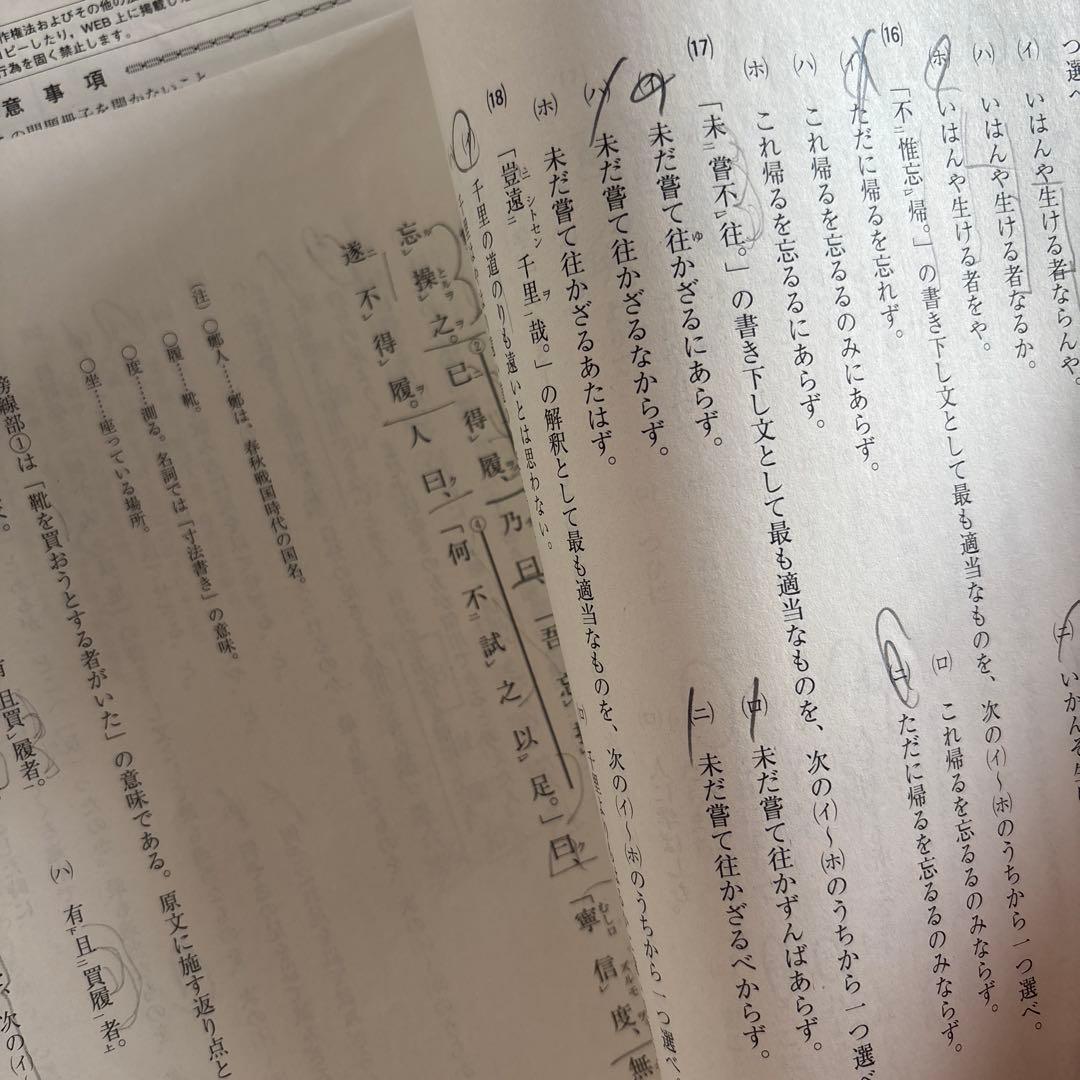 つ選べ
(イ) いはんや生ける者ならんや。
(ハ) いはんや生ける者なるか。
(ホ) いはんや生ける者をや。
(ニ) いかんぞ
(16) 「不二惟忘レ帰。」の書き下し文として最も適当なものを、次の(イ)～(ホ)のうちから一つ選べ。
(イ) ただに帰るを忘れず。
(ロ) これ帰るを忘るるのみならず。
(ハ) これ帰るを忘るるのみにあらず。
(ニ) ただに帰るを忘るるのみならず。
(ホ) これ帰るを忘るるにあらず。
(17) 「未二嘗不一レ往。」の書き下し文として最も適当なものを、次の(イ)～(ホ)のうちから一つ選べ
(イ) 未だ嘗て往かざるにあらず。
(ロ) 未だ嘗て往かずんばあらず。
(ハ) 未だ嘗て往かざるなからず。
(ニ) 未だ嘗て往かざるべからず。
(ホ) 未だ嘗て往かざるあたはず。
(18) 「豈遠ニシトセン二千里ヲ一哉。」の解釈として最も適当なものを、次の(イ)～(ホ)のうちから一つ選べ。
(イ) 千里の道のりも遠いとは思わない。
乃チ曰ク、吾忘
忘レ操ルヲレ之ヲ。已ニ得レ履ヲ、
遂ニ不レ得レ履ヲ。人曰ク、「何不二試レ之以レ足。」曰ク、「寧ロ信レ度、無
(注) ○鄭人……鄭は、春秋戦国時代の国名。
○履……靴。
○度……測る。名詞では「寸法書き」の意味。
○坐……座っている場所。
傍線部①は「靴を買おうとする者がいた」の意味である。原文に施す返り点と
次の(イ)
有 且買レ履者一。
(ハ) 有下且二買履一者上。
意事項
作権法およびその他の
コピーしたり，WEB上に掲載した
行為を固く禁止します。
の問題冊子を開かないこと